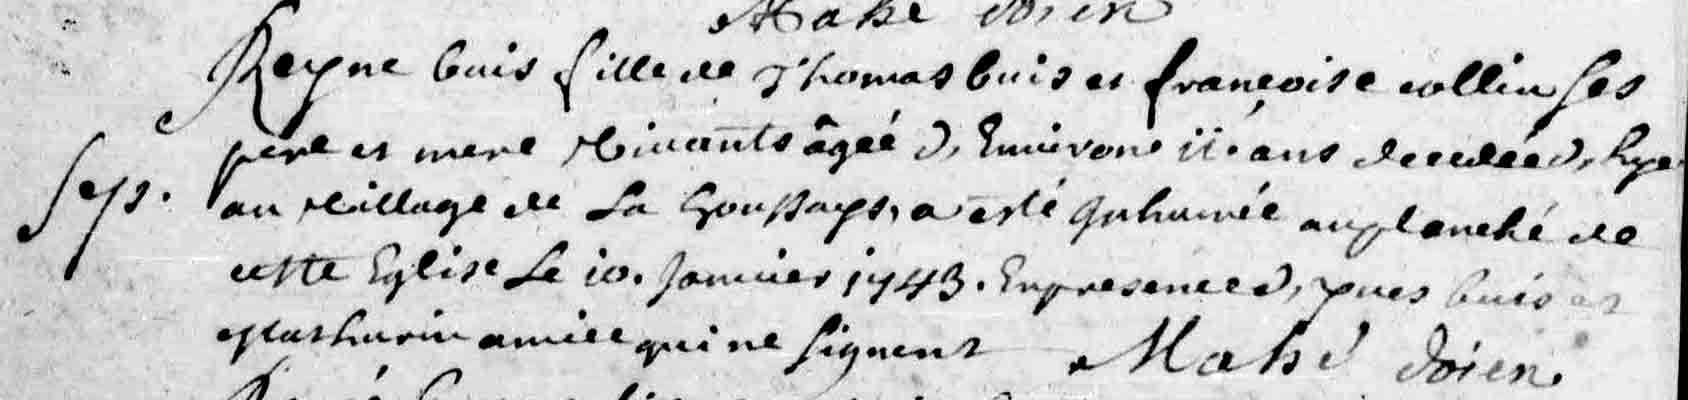 Mahé doien
Reyne buis fille de Thomas buis et françoise collin ses
pere et mere vivants âgéé d'Environ 11. ans decedéé d'hyer
Seps.
au village de La houssays, a esté Inhumée au plaché de
cette Eglise Le 10. Janvier 1743. En presence d', yues buis et
Mathurin amice qui ne signent Mahé doien.